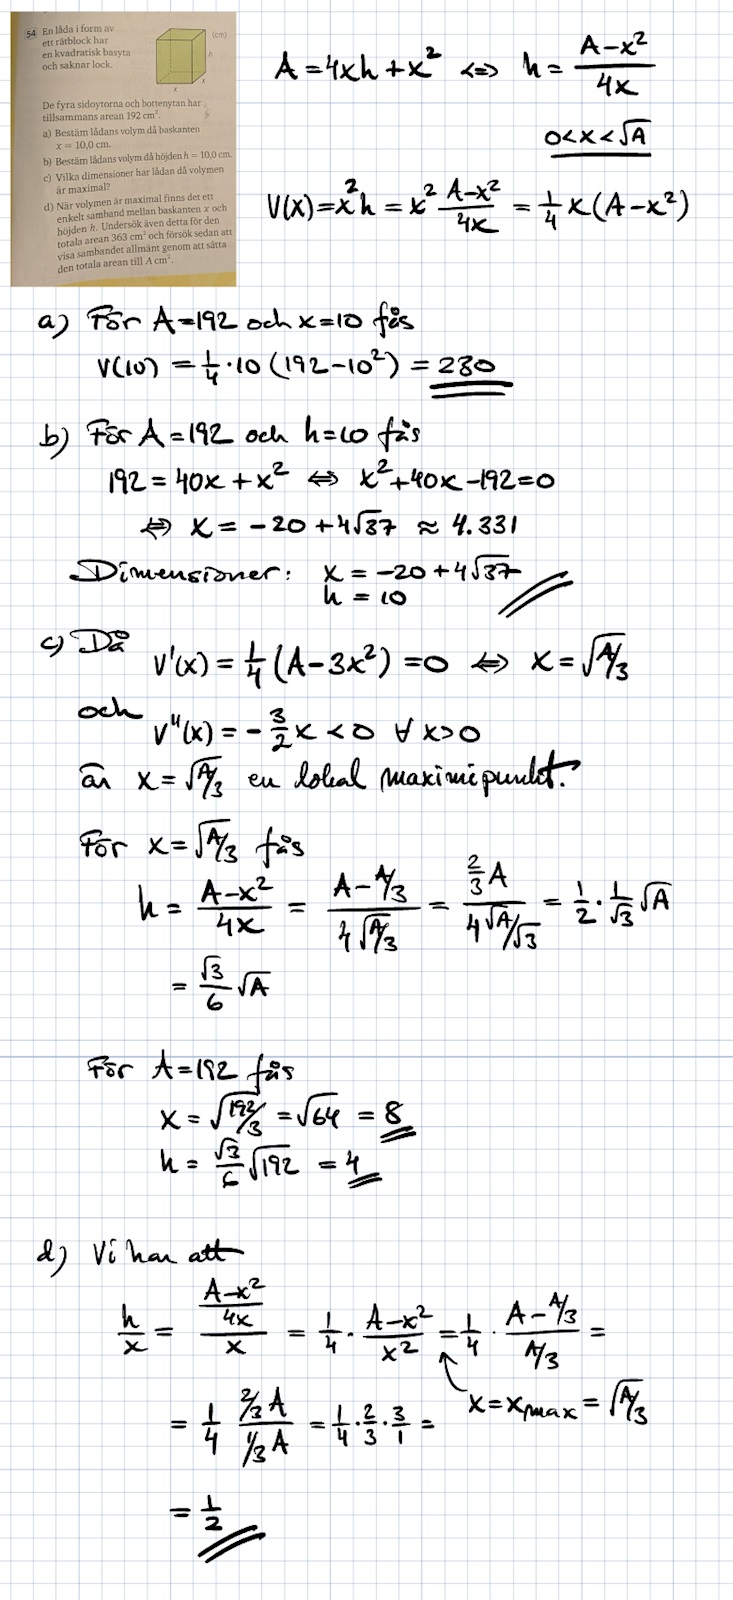 54 En låda i form av
ett rätblock har
en kvadratisk basyta
och saknar lock.
(cm)
h
x
x
De fyra sidoytorna och bottenytan har
tillsammans arean 192 cm².
a) Bestäm lådans volym då baskanten
x = 10,0 cm.
b) Bestäm lådans volym då höjden h = 10,0 cm.
c) Vilka dimensioner har lådan då volymen
är maximal?
d) När volymen är maximal finns det ett
enkelt samband mellan baskanten x och
höjden h. Undersök även detta för den
totala arean 363 cm² och försök sedan att
visa sambandet allmänt genom att sätta
den totala arean till A cm².
A = 4xh + x² <=> h = (A-x²)/(4x)
0<x<√A
V(x) = x²h = x² (A-x²)/(4x) = 1/4 x(A-x²)
a) För A=192 och x=10 fås
V(10) = 1/4 · 10 (192-10²) = 230
b) För A=192 och h=10 fås
192 = 40x + x² <=> x²+40x-192=0
<=> x = -20+4√37 ≈ 4.331
Dimensioner: x = -20+4√37
h = 10
c) Då
V'(x) = 1/4 (A-3x²) = 0 <=> x = √(A/3)
och
V''(x) = -3/2 x < 0 ∀ x>0
är x = √(A/3) en lokal maximipunkt.
För x = √(A/3) fås
h = (A-x²)/(4x) = (A-A/3)/(4√(A/3)) = (2/3 A)/(4√A/√3) = 1/2 · 1/√3 √A
= √3/6 √A
För A=192 fås
x = √(192/3) = √64 = 8
h = √3/6 √192 = 4
d) Vi har att
h/x = ((A-x²)/(4x))/x = 1/4 · (A-x²)/x² = 1/4 · (A-A/3)/(A/3) =
x = xmax = √(A/3)
= 1/4 (2/3 A)/(1/3 A) = 1/4 · 2/3 · 3/1 =
= 1/2